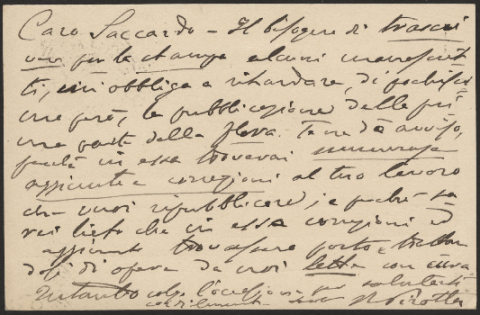 Caro Saccardo – Il bisogno di trascri
vere per la stampa alcuni manoscrit
ti, mi obbliga a ritardare, di pochissi
mo però, la pubblicazione della pri
ma parte della flora. Te ne dò avviso,
perchè in essa troverai numerose
aggiunte e correzioni al tuo lavoro
che vuoi ripubblicare; e perchè sa
rei lieto che in essa correzioni ed
aggiunte trovassero posto e trattan
dosi di opera da noi letta con cura
Intanto colgo l'occasione per salutarti
cordialmente tuo R Pirotta